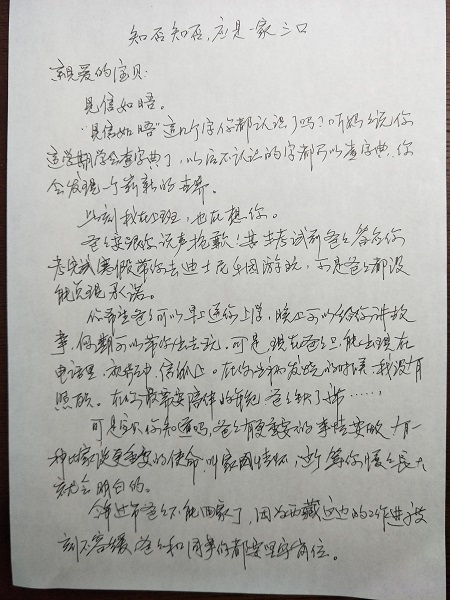 知否知否,应是一家三口
亲爱的宝贝:
见信如晤。
“见信如晤”这几个字你都认识了吗?听妈妈说你
这学期学会查字典了,以后不认识的字都可以查字典,你
会发现一个崭新的世界。
此刻我在上班,也在想你。
爸爸要跟你说声抱歉!其末考试前爸爸答应你
考完试寒假带你去迪士尼乐园游玩,可是爸爸都没
能兑现承诺。
你希望爸爸可以早上送你上学,晚上可以给你讲故
事,假期可以带你出去玩。可是现在爸爸只能出现在
电话里,视频中,信纸上。在你生病发烧的时候,我没有
照顾。在你最需要陪伴的年纪爸爸缺了席……
可是宝贝你知道吗,爸爸有更重要的事情要做,有一
种比家庭更重要的使命,叫家国情怀,这个等你慢慢长大
就会明白的。
今年过年爸爸不能回家了,因为西藏这边的工作进度
刻不容缓,爸爸和同事们都要坚守岗位。